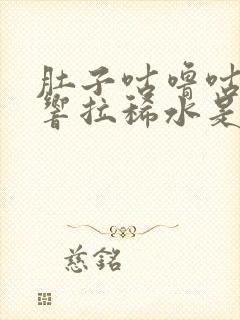 肚子咕噜咕
响拉稀水是
慈銘